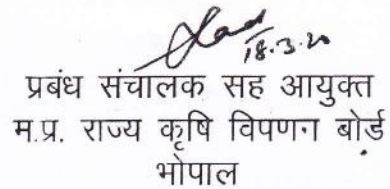 18.3.20
प्रबंध संचालक सह आयुक्त
म.प्र. राज्य कृषि विपणन बोर्ड
भोपाल